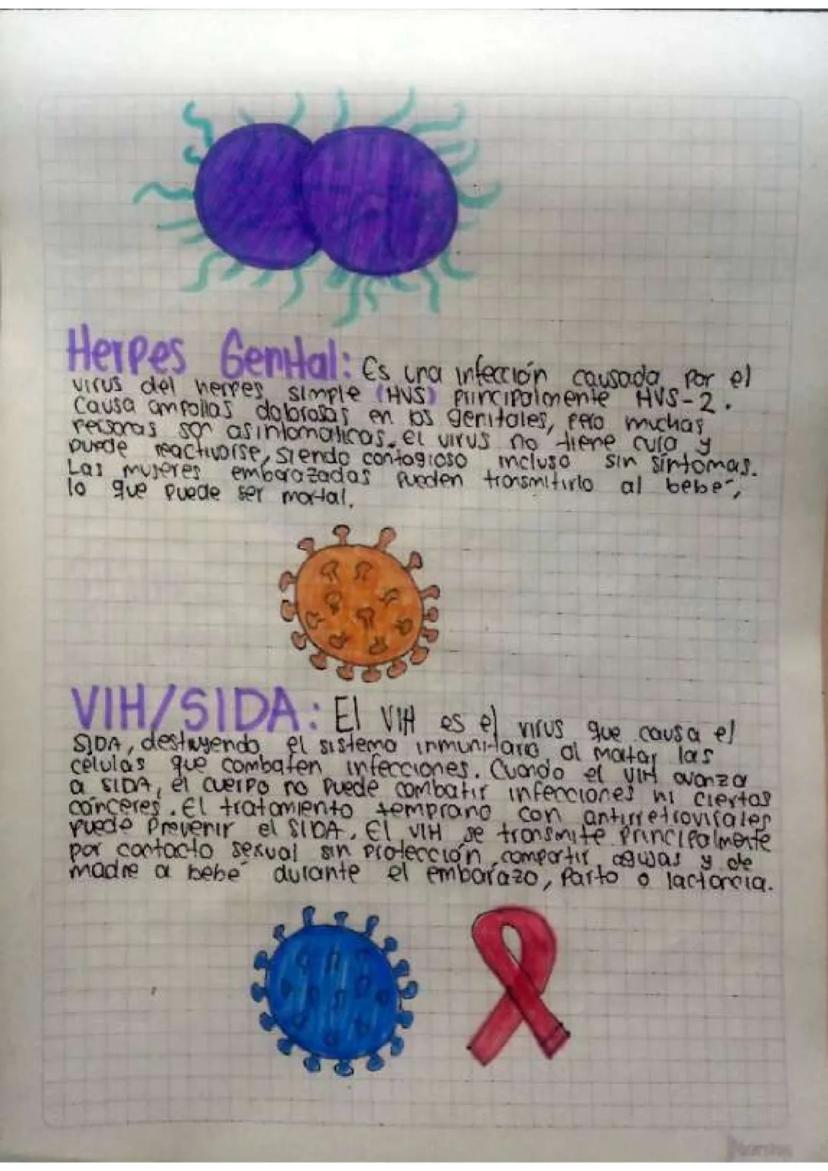 Herpes Genital: Es una infección causada por el
virus del herpes simple (HVS) principalmente HVS-2.
Causa ampollas dolorosas en los genitales, pero muchas
personas son asintomaticas. el virus no tiene cura y
puede reactivarse, siendo contagioso incluso sin síntomas.
Las mujeres embarazadas pueden transmitirlo al bebé,
lo que puede ser mortal.
VIH/SIDA: El VIH es el virus que causa el
SIDA, destruyendo el sistema inmunitario al matar las
células que combaten infecciones. Cuando el VIH avanza
a SIDA, el cuerpo no puede combatir infecciones ni ciertos
cánceres. El tratamiento temprano con antirretrovirales
puede prevenir el SIDA. El VIH se transmite principalmente
por contacto sexual sin protección, compartir agujas y de
madre a bebé durante el embarazo, parto o lactancia.